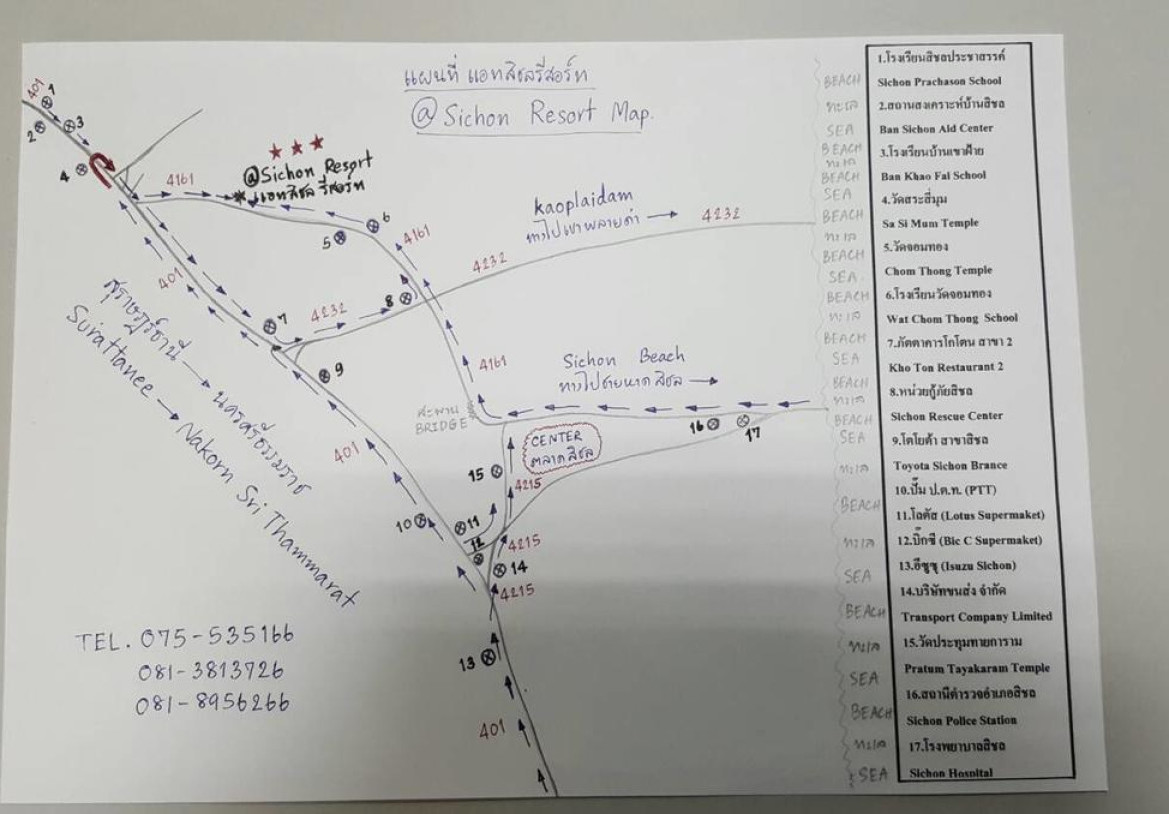 แผนที่ แอทสิชลรีสอร์ท
@ Sichon Resort Map.
401
1
2
3
4
4161
@Sichon Resort
แอทสิชล รีสอร์ท
5
6
4161
kaoplaidam
ทางไปเขาพลายดำ
4232
4232
4232
401
7
8
9
สุราษฎร์ธานี → นครศรีธรรมราช
Surattanee → Nakorn Sri Thammarat
4161
Sichon Beach
ทางไปชายหาดสิชล
สะพาน
BRIDGE
CENTER
ตลาดสิชล
16
17
401
15
4215
10
11
12
4215
14
4215
13
401
TEL. 075-535166
081-3813726
081-8956266
BEACH
ทะเล
SEA
BEACH
ทะเล
BEACH
SEA
BEACH
ทะเล
BEACH
SEA
BEACH
ทะเล
BEACH
SEA
BEACH
ทะเล
BEACH
SEA
ทะเล
BEACH
ทะเล
SEA
BEACH
ทะเล
SEA
BEACH
ทะเล
SEA
1.โรงเรียนสิชลประชาสรรค์
Sichon Prachason School
2.สถานสงเคราะห์บ้านสิชล
Ban Sichon Aid Center
3.โรงเรียนบ้านเขาฝ้าย
Ban Khao Fai School
4.วัดสระสี่มุม
Sa Si Mum Temple
5.วัดจอมทอง
Chom Thong Temple
6.โรงเรียนวัดจอมทอง
Wat Chom Thong School
7.ภัตตาคารโกโตน สาขา 2
Kho Ton Restaurant 2
8.หน่วยกู้ภัยสิชล
Sichon Rescue Center
9.โตโยต้า สาขาสิชล
Toyota Sichon Brance
10.ปั๊ม ป.ต.ท. (PTT)
11.โลตัส (Lotus Supermaket)
12.บิ๊กซี (Bic C Supermaket)
13.อีซูซุ (Isuzu Sichon)
14.บริษัทขนส่ง จำกัด
Transport Company Limited
15.วัดประทุมทายการาม
Pratum Tayakaram Temple
16.สถานีตำรวจอำเภอสิชล
Sichon Police Station
17.โรงพยาบาลสิชล
Sichon Hospital